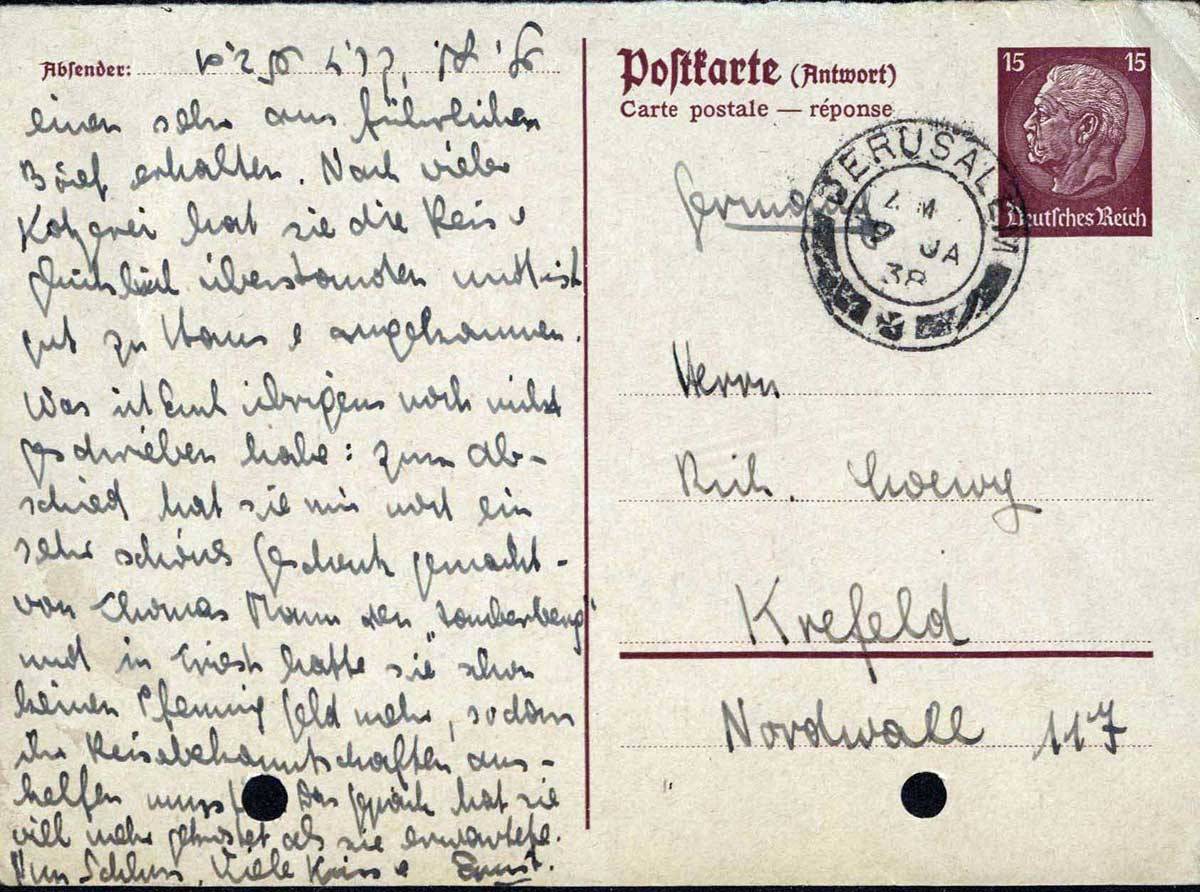 Absender:
einen sehr aus führlichen
Brief erhalten. Nach vieler
Kotzerei hat sie die Reise
glücklich überstanden und ist
gut zu Hause angekommen.
Was ich Euch übrigens noch nicht
geschrieben habe: zum Ab-
schied hat sie mir noch ein
sehr schönes Geschenk gemacht -
von Thomas Mann den "Zauberberg"
und in Triest hatte sie schon
keinen Pfennig Geld mehr, sodass
ihr Reisebekanntschaften aus-
helfen mussten. Das Gepäck hat sie
viel mehr gekostet als sie erwartete.
Nun Schluss, Viele Küsse Ernst.
Postkarte (Antwort)
Carte postale — réponse
15 15
Deutsches Reich
JERUSALEM
AM
9 JA
38
Germany
Herrn
Rich. Loewy
Krefeld
Nordwall 117